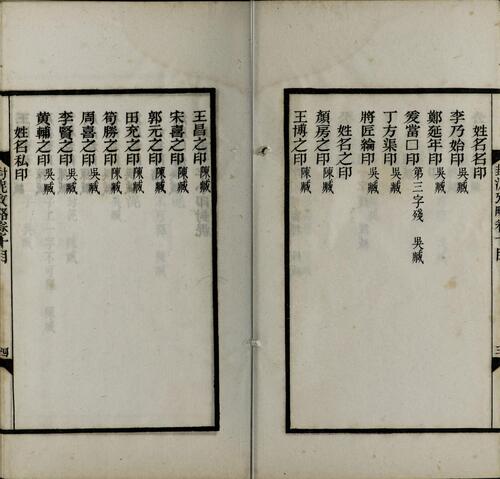 姓名名印
李乃始印 吳臧
鄭延年印 吳臧
笅當□印 第三字殘 吳臧
丁方渠印 吳臧
將匠綸印 吳臧
姓名之印
顏房之印 陳臧
王博之印 陳臧
封泥攷略卷十目
三
王昌之印 陳臧
宋喜之印 陳臧
郭元之印 陳臧
田充之印 陳臧
筍勝之印 陳臧
周喜之印 吳臧
李賢之印 吳臧
黃輔之印 吳臧
姓名私印
封泥攷略卷十目
四